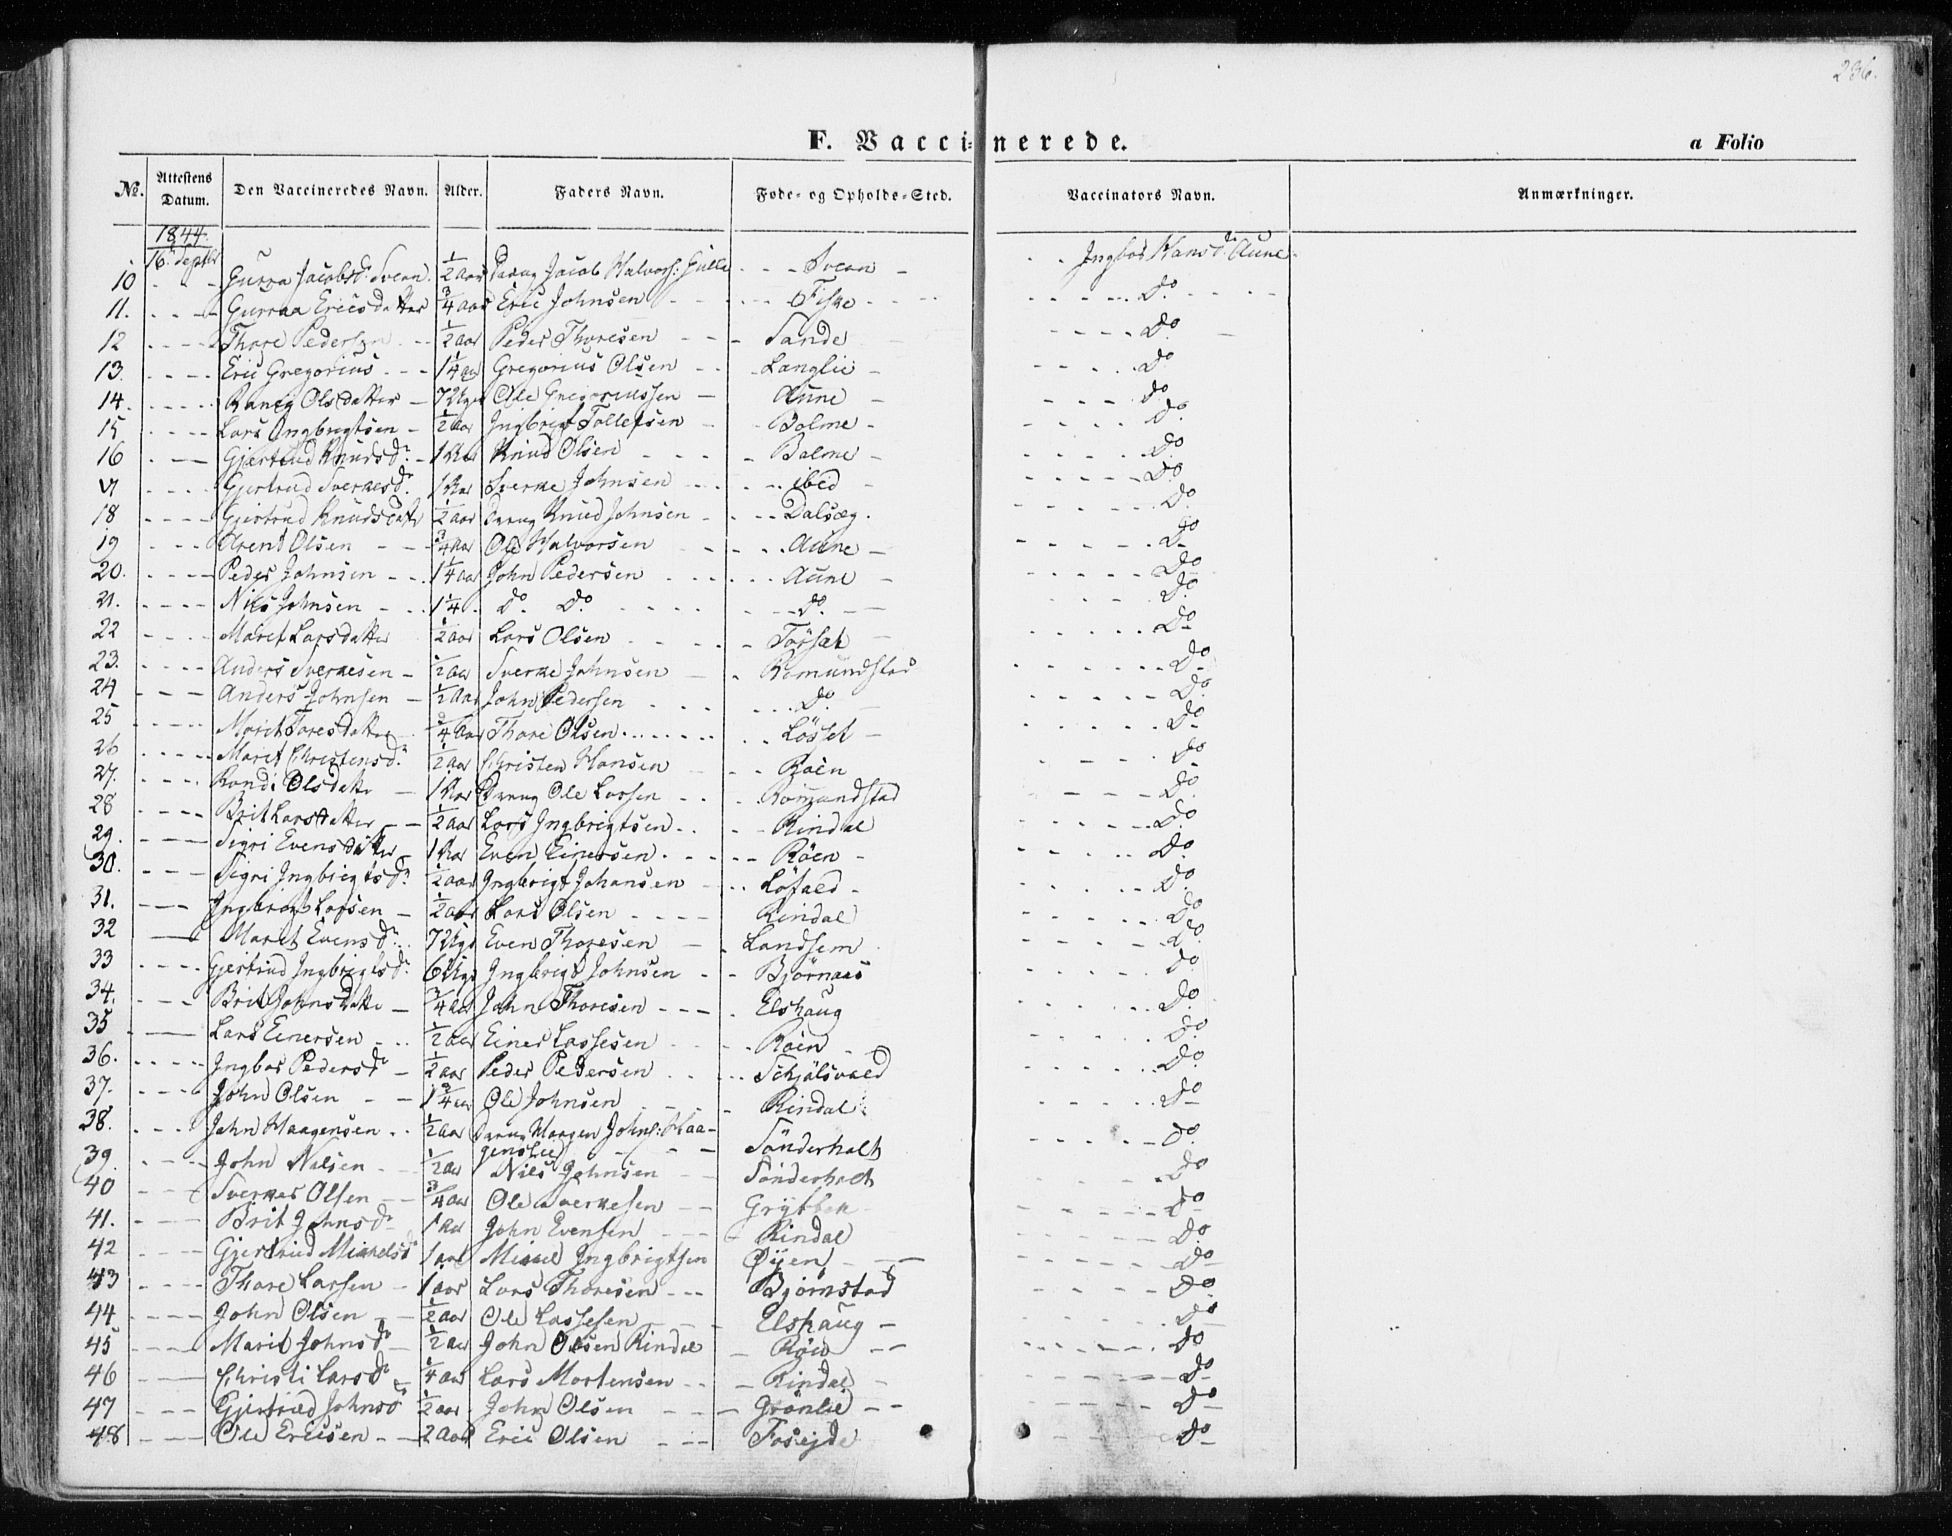 236.
F. Vaccinerede.
a Folio
No. Attestens Datum. Den Vaccineredes Navn. Alder. Faders Navn. Føde- og Opholds-Sted. Vaccinators Navn. Anmærkninger.
1844.
16 Septbr
10 - - - Gurra Jacobsd. Svean. 1/2 aar Jacob Halvors: - - - Svean - - - Ingbor Hansd. Aune
11. - - - Gurraa Ericsdatter 3/4 aar Eric Johnsen - - - Fiske - - - Do
12 - - - Thore Pedersen 1/2 aar Peder Thoresen - - - Sande - - - Do
13. - - - Eric Gregorius - - - 1 1/4 aar Gregorius Olsen - - Langlie - - - Do
14. - - - Olsdatter - 7 Uger Ole Gregoriussen - Aune - - - Do
15 - - - Lars Ingbrigtsen - 1/2 aar Ingbrigt Tollefsen - Bolme - - - Do
16 - - - Gjertrud Knudsd. - 1 Aar Knud Olsen - - - Bolme - - - Do
17 - - - Gjertrud Sverkesd. 1 Aar Sverke Johnsen - - - ibid - - - Do
18 - - - Gjertrud Knudsdatr 1/2 aar Knud Johnsen - - - Dalsæg. - - - Do
19 - - - Arent Olsen - - 3/4 aar Ole Halvorsen - - - Aune - - - Do
20. - - - Peder Johnsen - - 1 1/4 aar John Pedersen - - - Aune - - - Do
21. - - - Nils Johnsen - - 1 1/4. Do Do - - - Do. - - - Do
22 - - - Marit Larsdatter 1/2 aar Lars Olsen - - - Torset - - - Do
23. - - - Anders Sverkesen - 1/2 aar Sverke Johnsen - - Romundstad - - - Do
24 - - - Anders Johnsen - 1/2 Aar John Pedersen - - - Do - - - Do
25 - - - Marit Toresdatter 3/4 Aar Thore Olsen - - - Løset - - - Do
26 - - - Marit Christensd. 1/2 aar Christen Hansen - - Røen - - - Do
27. - - - Randi Olsdatter - 1 Aar Ole Larsen - - - Romundstad - - - Do
28 - - - Brit Larsdatter - 1/2 aar Lars Ingbrigtsen - - Rindal - - - Do
29. - - - Sigri Evensdatter 1 Aar Even Einersen - - - Røen - - - Do
30. - - - Sigri Ingbrigtsd. 1/2 aar Ingbrigt Johansen - - Løfald - - - Do
31. - - - Ingbrigt Larsen - 1/2 aar Lars Olsen - - - Rindal - - - Do
32 - - - Marit Evensd. 7 Uger Even Thoresen - Landsem - - - Do
33 - - - Gjertrud Ingbrigtsd. 6 Uger Ingbrigt Johnsen - - Bjørnaas - - - Do
34. - - - Brit Johnsdatter - 3/4 aar John Thoresen - - - Elshaug - - - Do
35 - - - Lars Einersen - - 1/2 aar Einer Larsesen - - Røen - - - Do
36. - - - Ingbor Pedersd. - 1/2 aar Peder Pedersen - - - Schjølsvold - - - Do
37. - - - John Olsen - - 1 3/4 aar Ole Johnsen - - - Rindal - - - Do
38. - - - John Haagensen - - 1/2 aar Haagen Johns: Haa-
genslie - - - Sønderholt - - - Do
39 - - - John Nilsen - - 1/2 aar Nils Johnsen - - Sønderholt - - - Do
40 - - - Sverker Olsen - - 3/4 aar Ole Sverkesen - - - - - Do
41. - - - Brit Johnsd - 1 aar John Evensen - - - Rindal - - - Do
42 - - - Gjertrud Mikkelsd 1 aar Mikkel Ingbrigtsen Øyen - - - Do
43 - - - Thore Larsen - 1 aar Lars Thoresen - - - Bjørnstad - - - Do
44 - - - John Olsen - - 1/2 aar Ole Lassesen - - Elshaug - - - Do
45 - - - Marit Johnsd - 1/2 aar John Olsen Rindal - Røen - - - Do
46 - - - Christi Larsd. 1/4 aar Lars Mortensen - - - Rindal - - - Do
47 - - - Gjertrud Johnsd 1/2 aar. John Olsen - - - Grønlie - - - Do
48 - - - Ole Ericsen - - 2 Aar Eric Olsen - - - - - - Do